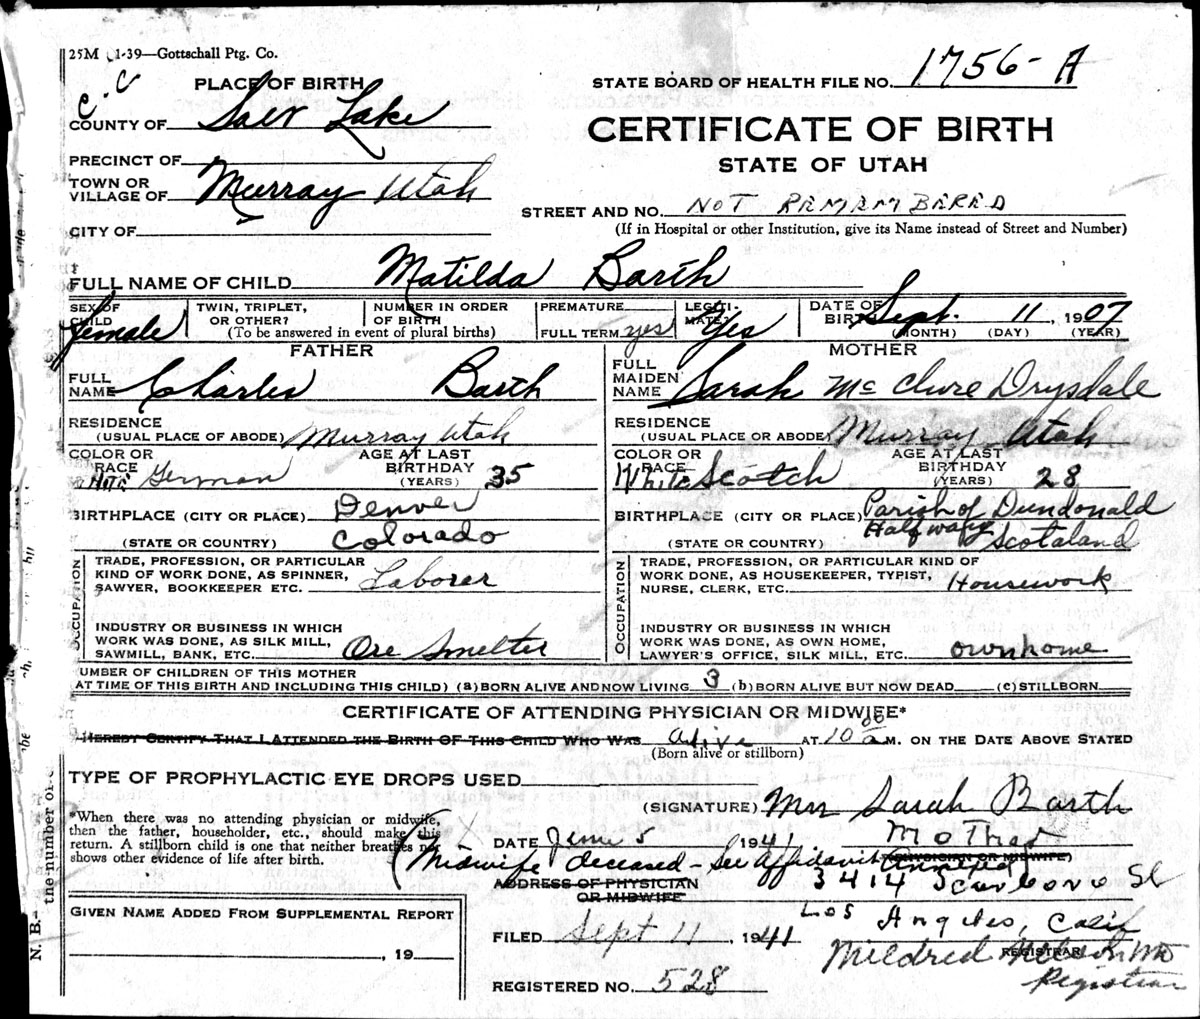 25M 1-39—Gottschall Ptg. Co.
PLACE OF BIRTH
C.C
COUNTY OF Salt Lake
PRECINCT OF
TOWN OR VILLAGE OF Murray Utah
CITY OF
STATE BOARD OF HEALTH FILE NO. 1756-A
CERTIFICATE OF BIRTH
STATE OF UTAH
STREET AND NO. NOT REMEMBERED
(If in Hospital or other Institution, give its Name instead of Street and Number)
FULL NAME OF CHILD Matilda Barth
SEX OF CHILD female
TWIN, TRIPLET, OR OTHER?
NUMBER IN ORDER OF BIRTH
(To be answered in event of plural births)
PREMATURE
FULL TERM yes
LEGITIMATE? Yes
DATE OF BIRTH Sept. 11, 1907
(MONTH) (DAY) (YEAR)
FATHER
FULL NAME Charles Barth
RESIDENCE (USUAL PLACE OF ABODE) Murray Utah
COLOR OR RACE White German
AGE AT LAST BIRTHDAY (YEARS) 35
BIRTHPLACE (CITY OR PLACE) Denver
(STATE OR COUNTRY) Colorado
OCCUPATION
TRADE, PROFESSION, OR PARTICULAR KIND OF WORK DONE, AS SPINNER, SAWYER, BOOKKEEPER ETC. Laborer
INDUSTRY OR BUSINESS IN WHICH WORK WAS DONE, AS SILK MILL, SAWMILL, BANK, ETC. Ore Smelter
MOTHER
FULL MAIDEN NAME Sarah McClure Drysdale
RESIDENCE (USUAL PLACE OR ABODE) Murray Utah
COLOR OR RACE White Scotch
AGE AT LAST BIRTHDAY (YEARS) 28
BIRTHPLACE (CITY OR PLACE) Parish of Dundonald
Halfway
(STATE OR COUNTRY) Scotaland
OCCUPATION
TRADE, PROFESSION, OR PARTICULAR KIND OF WORK DONE, AS HOUSEKEEPER, TYPIST, NURSE, CLERK, ETC. Housework
INDUSTRY OR BUSINESS IN WHICH WORK WAS DONE, AS OWN HOME, LAWYER'S OFFICE, SILK MILL, ETC. own home
UMBER OF CHILDREN OF THIS MOTHER
AT TIME OF THIS BIRTH AND INCLUDING THIS CHILD) (a) BORN ALIVE AND NOW LIVING 3 (b) BORN ALIVE BUT NOW DEAD (c) STILLBORN
CERTIFICATE OF ATTENDING PHYSICIAN OR MIDWIFE*
I HEREBY CERTIFY THAT I ATTENDED THE BIRTH OF THIS CHILD WHO WAS alive AT 10 00 a M. ON THE DATE ABOVE STATED
(Born alive or stillborn)
TYPE OF PROPHYLACTIC EYE DROPS USED
*When there was no attending physician or midwife, then the father, householder, etc., should make this return. A stillborn child is one that neither breathes nor shows other evidence of life after birth.
(SIGNATURE) Mrs Sarah Barth
DATE June 5 1941 Mother
(PHYSICIAN OR MIDWIFE)
(Midwife deceased - See Affidavit Annexed)
ADDRESS OF PHYSICIAN OR MIDWIFE 3414 St
Los Angeles, Calif
GIVEN NAME ADDED FROM SUPPLEMENTAL REPORT
, 19
FILED Sept 11, 1941
Mildred Nelson
REGISTRAR
Registrar
REGISTERED NO. 528
N. B.—
the number of